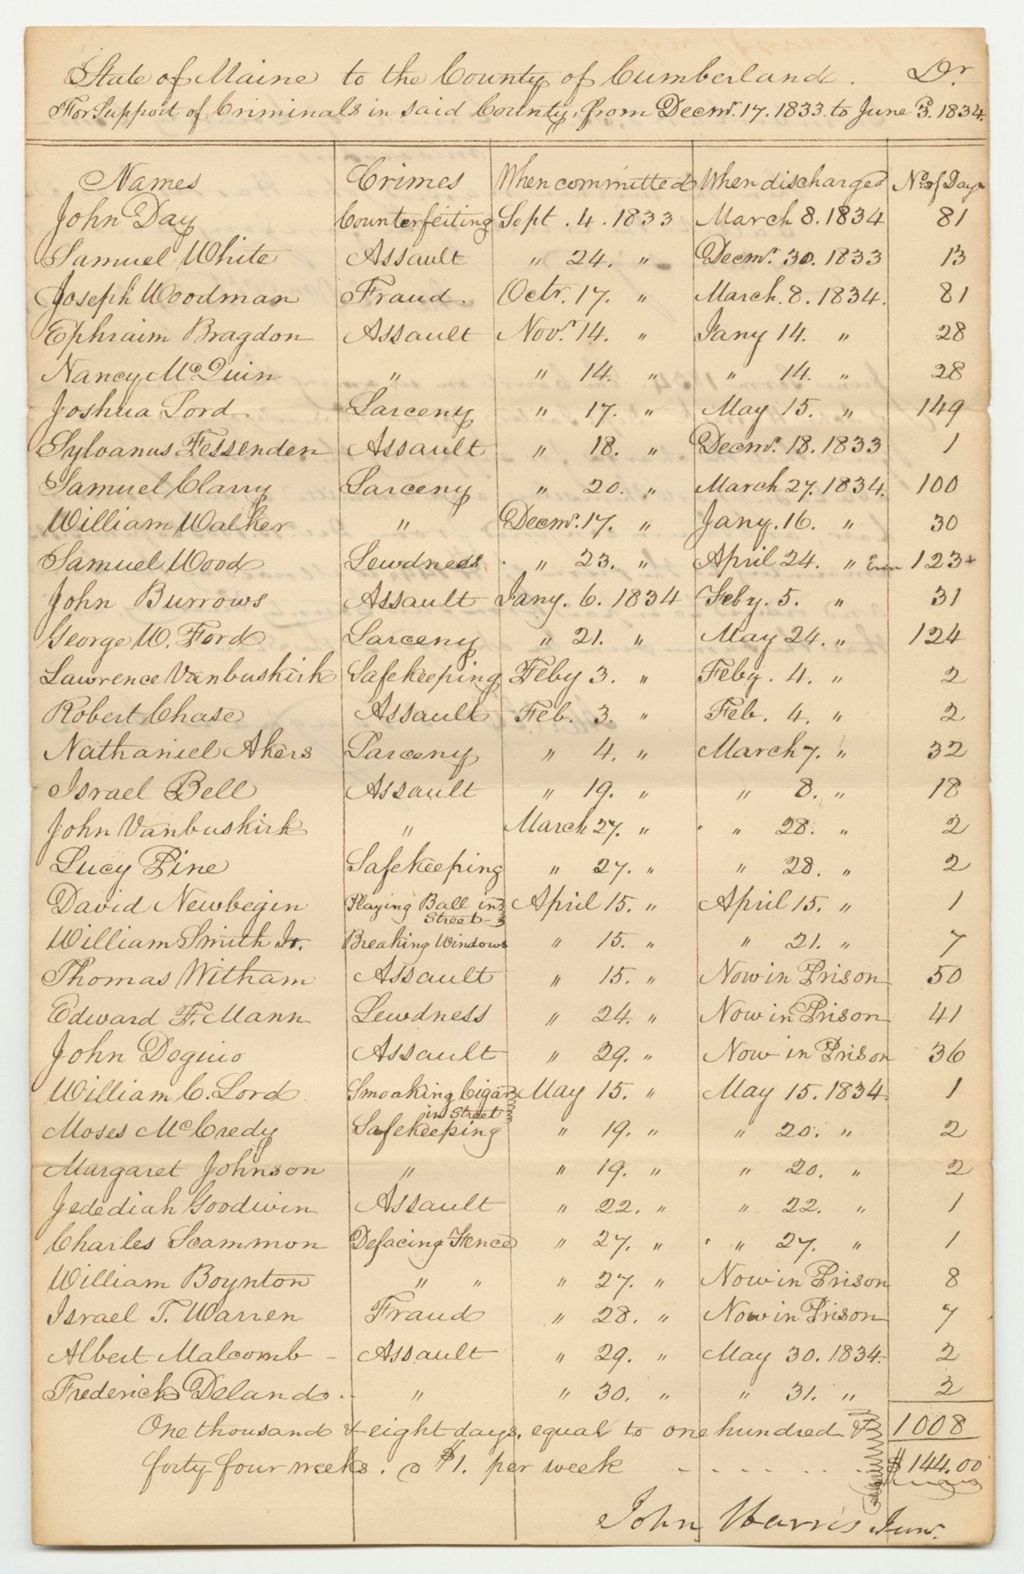 State of Maine to the County of Cumberland. Dr
For Support of Criminals in said County, from Decmr. 17. 1833 to June 3. 1834.
Names Crimes When committed When discharged No. of Days
John Day Counterfeiting Sept. 4. 1833 March 8. 1834 81
Samuel White Assault " 24. " Decmr. 30. 1833 13
Joseph Woodman Fraud. Octr. 17. " March. 8. 1834. 81
Ephraim Bragdon Assault Novr. 14. " Jany 14. " 28
Nancy McQuin " " 14. " " 14. " 28
Joshua Lord Larceny " 17. " May 15. " 149
Sylvanus Fessenden Assault " 18. " Decmr. 18. 1833 1
Samuel Clarry Larceny " 20. " March 27. 1834. 100
William Walker " Decmr. 17. " Jany. 16. " 30
Samuel Wood Lewdness " 23. " April 24. " 123+
John Burrows Assault Jany. 6. 1834 Feby. 5. " 31
George W. Ford Larceny " 21. " May 24. " 124
Lawrence Vanbuskirk Safekeeping Feby 3. " Feby. 4. " 2
Robert Chase Assault Feb. 3. " Feb. 4. " 2
Nathaniel Akers Larceny " 4. " March 7. " 32
Israel Bell Assault " 19. " " 8. " 18
John Vanbuskirk " March 27. " " 28. " 2
Lucy Pine Safekeeping " 27. " " 28. " 2
David Newbegin Playing Ball in Street April 15. " April 15. " 1
William Smith Jr. Breaking Windows " 15. " " 21. " 7
Thomas Witham Assault " 15. " Now in Prison 50
Edward F. Mann Lewdness " 24. " Now in Prison 41
John Deguio Assault " 29. " Now in Prison 36
William C. Lord Smoaking Cigar in Street May 15. " May 15. 1834. 1
Moses McCredy Safekeeping " 19. " " 20. " 2
Margaret Johnson " " 19. " " 20. " 2
Jedediah Goodwin Assault " 22. " " 22. " 1
Charles Scammon Defacing Fence " 27. " " 27. " 1
William Boynton " " " 27. " Now in Prison 8
Israel T. Warren Fraud " 28. " Now in Prison 7
Albert Malcomb - Assault " 29. " May 30. 1834. 2
Frederick Deland " " 30. " " 31. " 2
One thousand & eight days, equal to one hundred & 1008
forty four weeks. @ $1. per week $144.00
John Harris Junr.